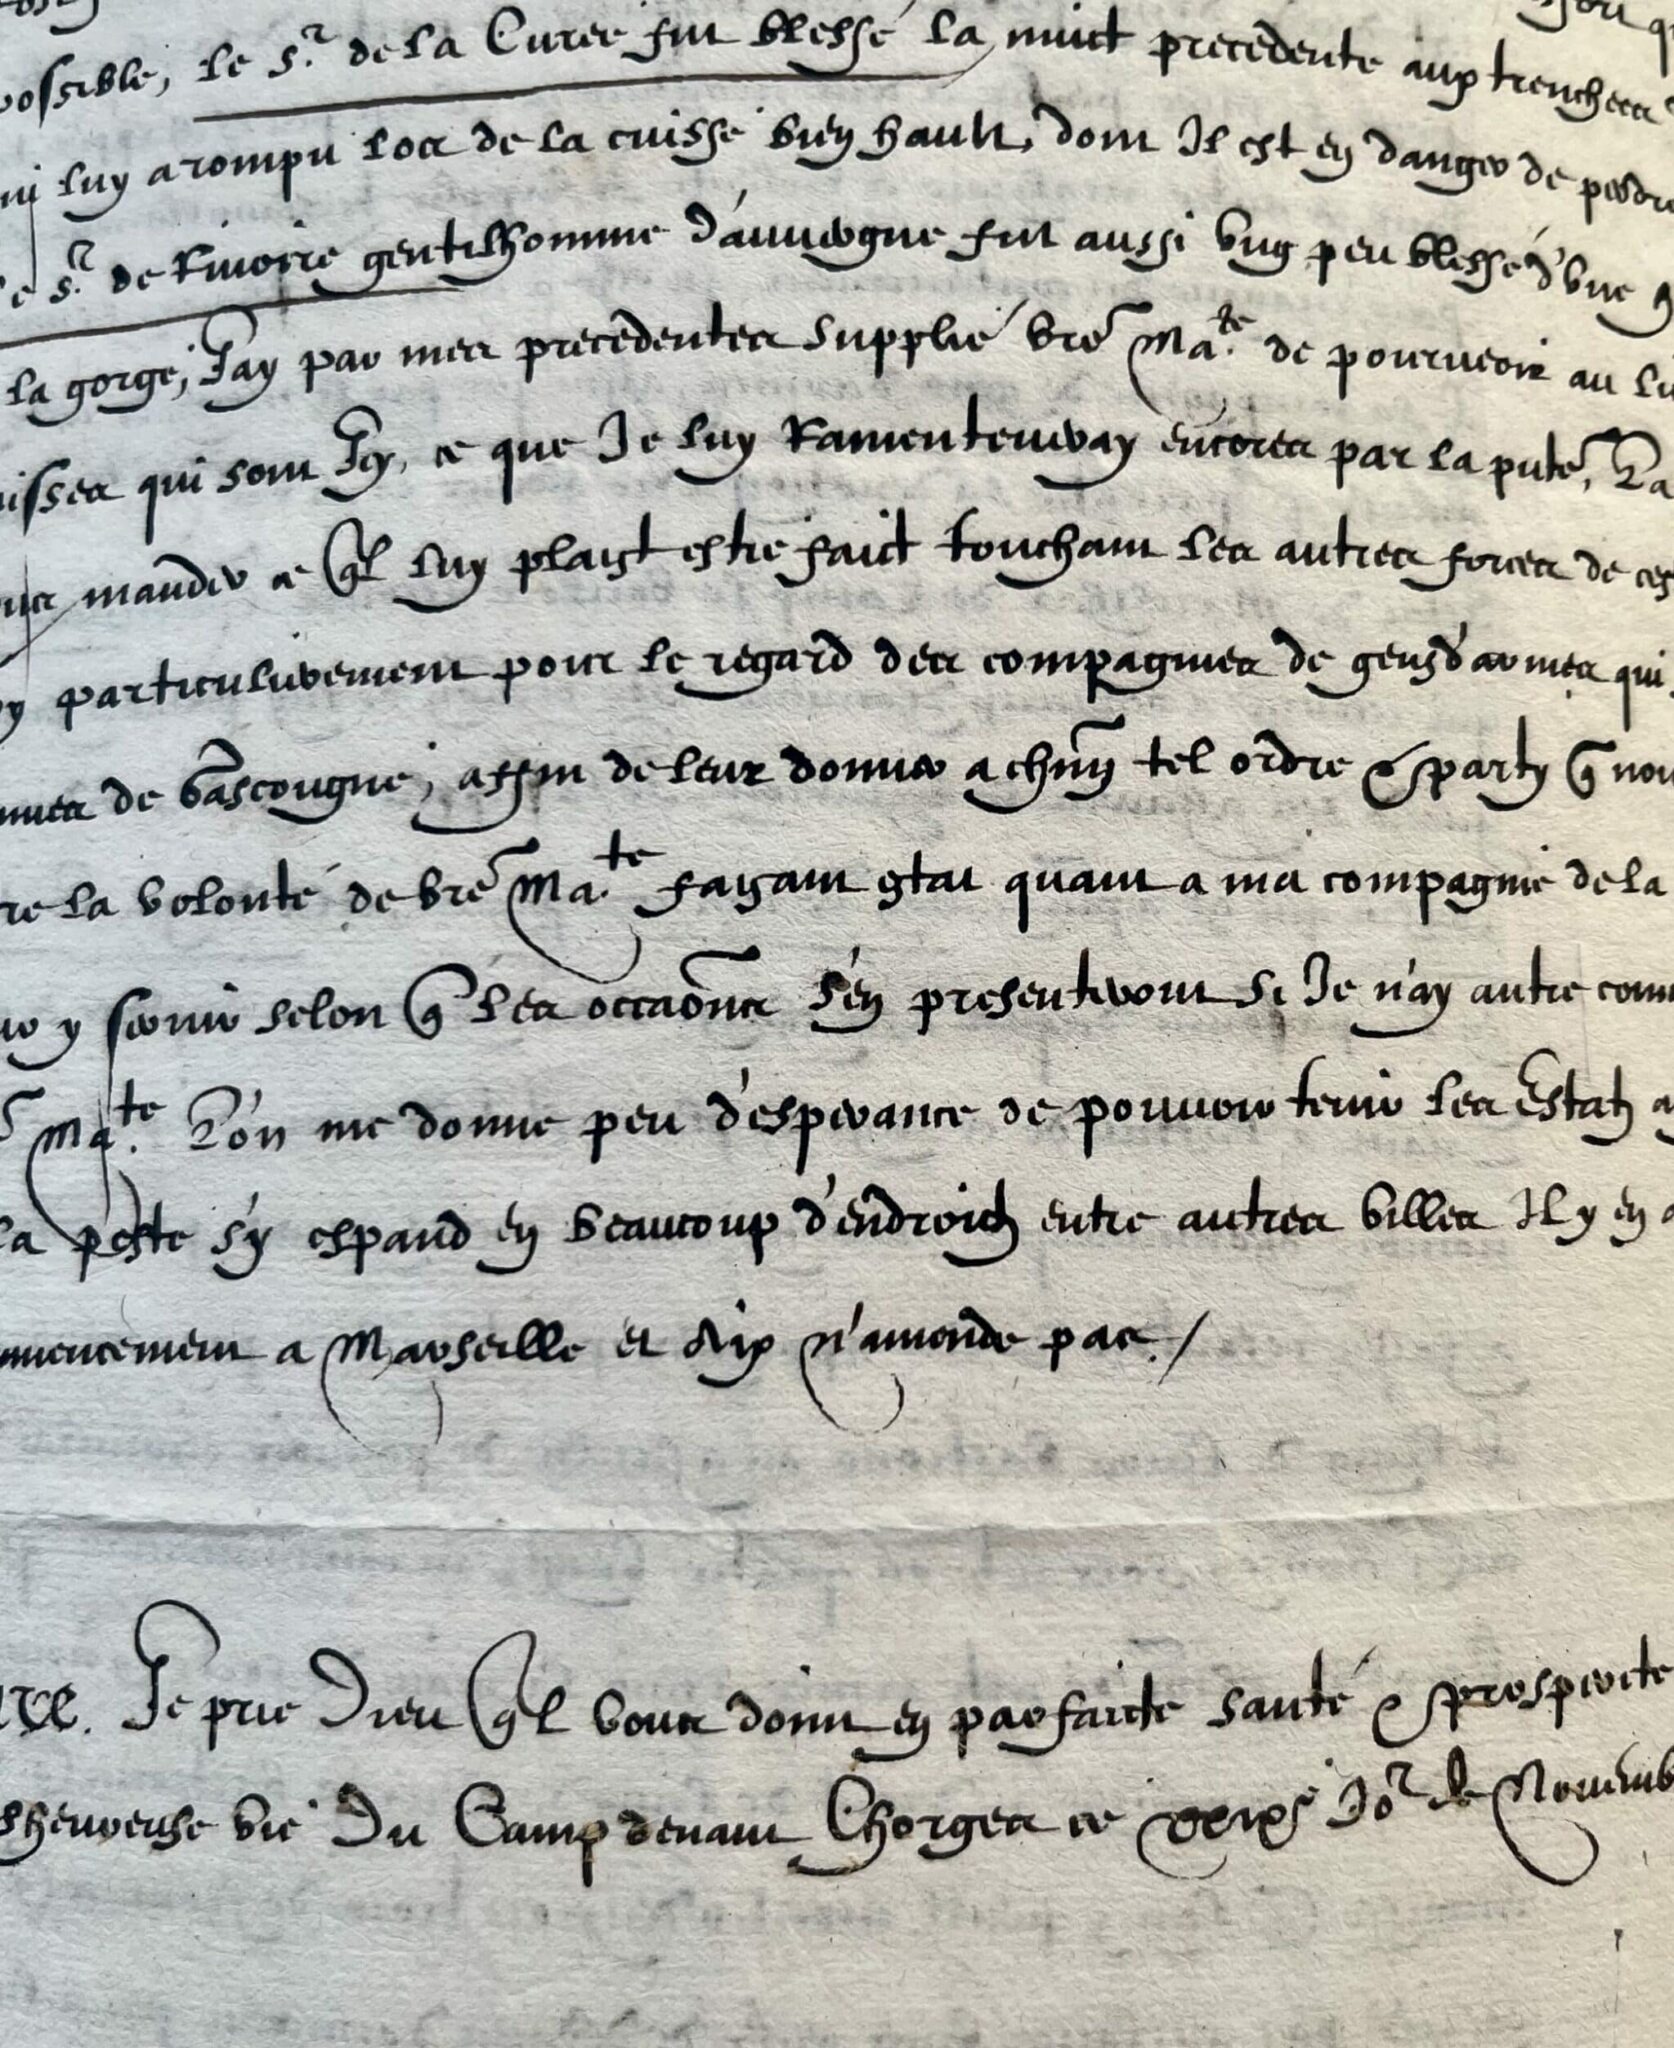 possible, le s.r de la Curee fut blesse la nuict precedente aux trenchees
luy a rompu l'os de la cuisse bien hault, dont Il est en danger de perdre
s.r de Rivoire gentilhomme d'auvergne fut aussi ung peu blessé d'une
la gorge, J'ay par mes precedentes supplié vre Ma.te de pourveoir au
qui sont Icy, ce que Je luy Ramenteuvray encores par la pnte,
mander ce ql luy plaist estre faict touchant les autres forces de ces
particulierement pour le regard des compagnies de gensd'armes qui
de Gascougne, affin de leur donner a chun tel ordre & party q
la volonté de vre Ma.te faisant estat quant a ma compagnie de la
y servir selon q les occaons s'en presenteront si Je n'ay autre
Ma.te L'on me donne peu d'esperance de pouvoir tenir les Estatz
la peste s'y espand en beaucoup d'endroictz entre autres villes Il y en a
a Marseille et Aix n'amende pas./
Je prie Dieu ql vous doint en parfaicte santé & prosperite
vie Du Camp devant Chorges ce xxixe Jor de Novemb